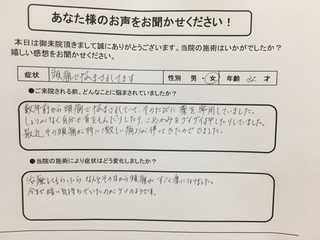 あなた様のお声をお聞かせください！
本日は御来院頂きまして誠にありがとうございます。当院の施術はいかがでしたか？
嬉しい感想をお聞かせください。
症状 頭痛で悩まされてます 性別 男・女 年齢 才
●ご来院される前、どんなことに悩まされていましたか？
数年前から頭痛で悩まされていて、そのたびに薬を常用していました。
しょうがなく自分で首をもんだりしたり、こめかみをグイグイ押したりしていました。
最近その頭痛が特に激しい痛みが伴ってきたのできました。
●当院の施術により症状はどう変化しましたか？
治療してもらったらなんとその日から頭痛がすごく楽になりました。
今まで暗い気持ちでいたのがウソのようです。